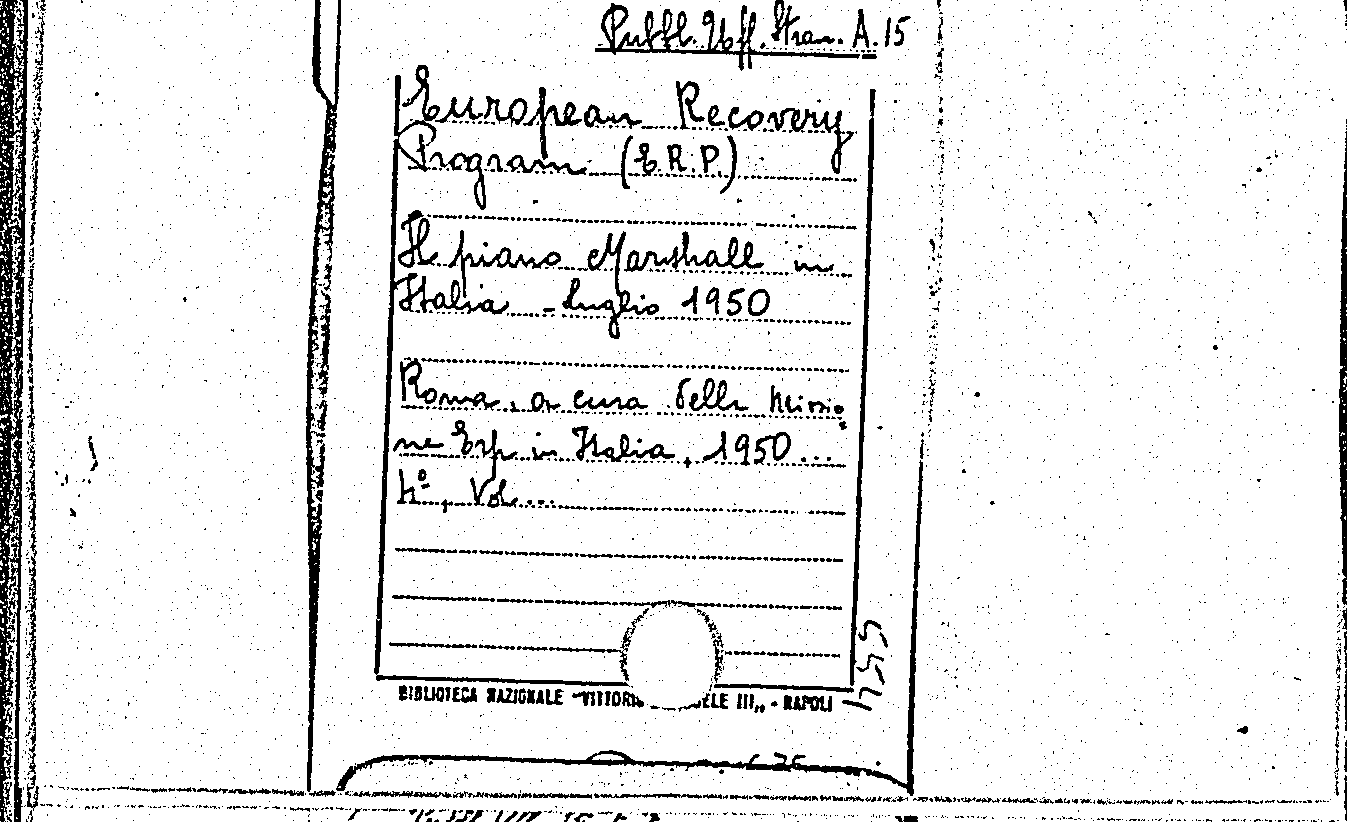 Pubbl. Uff. Stran. A. 15
European Recovery
Program (E.R.P.)
Il piano Marshall in
Italia - luglio 1950
Roma, a cura della Missio
ne Erp in Italia, 1950...
4º, Vol...
554
BIBLIOTECA NAZIONALE "VITTORIO ELE III„ - NAPOLI